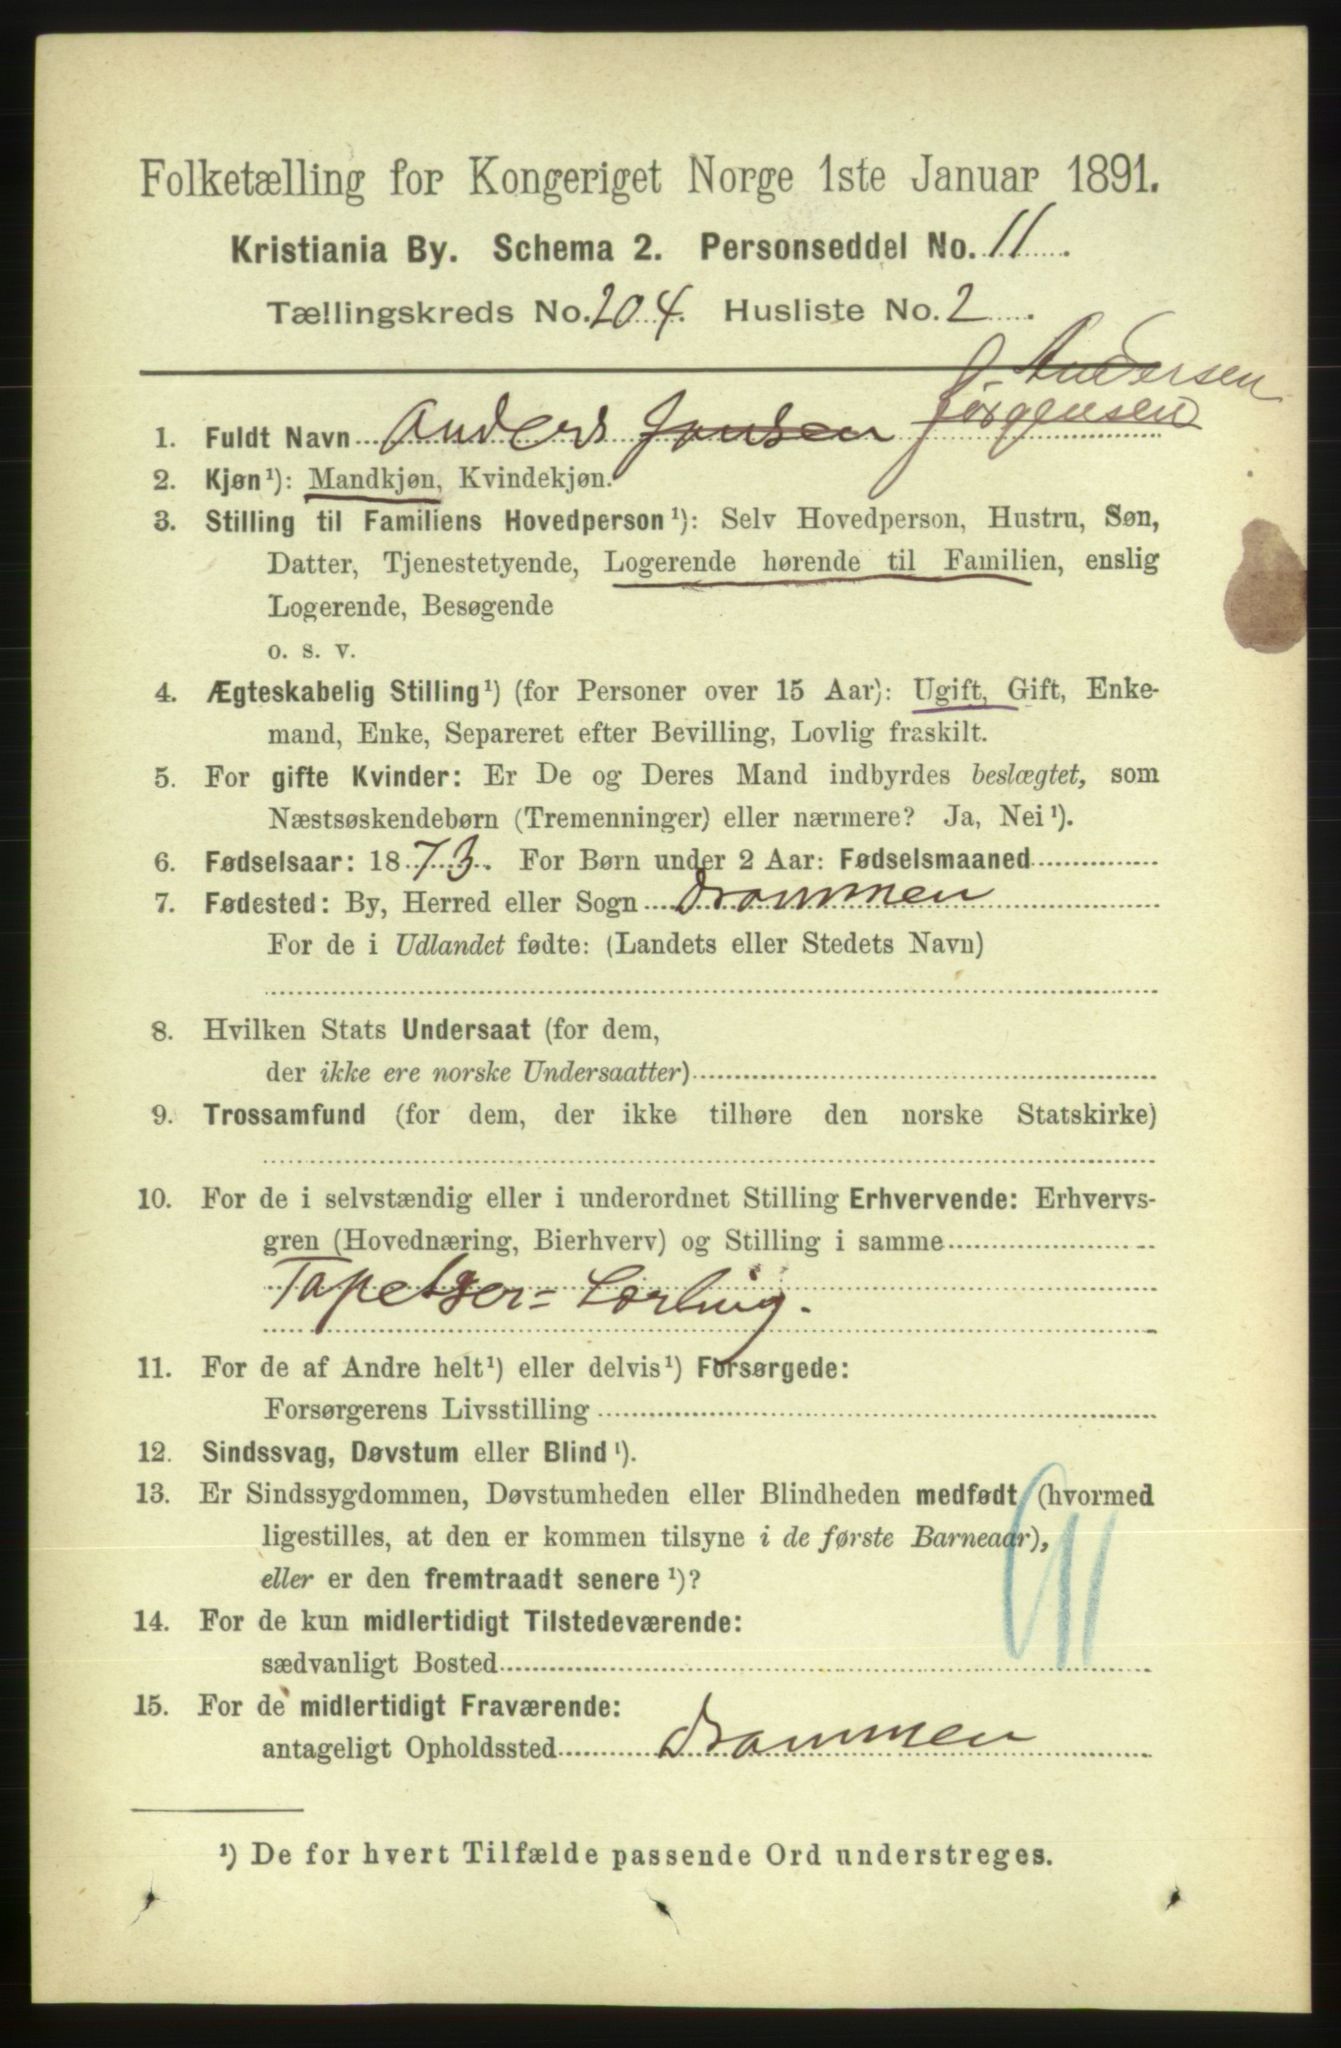 Folketælling for Kongeriget Norge 1ste Januar 1891.
Kristiania By. Schema 2. Personseddel No. 11
Tællingskreds No. 204 Husliste No. 2
J. Andersen
1. Fuldt Navn Anders Jonsen Jörgensen
2. Kjøn¹): Mandkjøn, Kvindekjøn.
3. Stilling til Familiens Hovedperson¹): Selv Hovedperson, Hustru, Søn,
Datter, Tjenestetyende, Logerende hørende til Familien, enslig
Logerende, Besøgende
o. s. v.
4. Ægteskabelig Stilling¹) (for Personer over 15 Aar): Ugift, Gift, Enke-
mand, Enke, Separeret efter Bevilling, Lovlig fraskilt.
5. For gifte Kvinder: Er De og Deres Mand indbyrdes beslægtet, som
Næstsøskendebørn (Tremenninger) eller nærmere? Ja, Nei¹).
6. Fødselsaar: 1873. For Børn under 2 Aar: Fødselsmaaned
7. Fødested: By, Herred eller Sogn Drammen
For de i Udlandet fødte: (Landets eller Stedets Navn)
8. Hvilken Stats Undersaat (for dem,
der ikke ere norske Undersaatter)
9. Trossamfund (for dem, der ikke tilhøre den norske Statskirke)
10. For de i selvstændig eller i underordnet Stilling Erhvervende: Erhvervs-
gren (Hovednæring, Bierhverv) og Stilling i samme
Tapetser=Lærling.
11. For de af Andre helt¹) eller delvis¹) Forsørgede:
Forsørgerens Livsstilling
12. Sindssvag, Døvstum eller Blind¹).
13. Er Sindssygdommen, Døvstumheden eller Blindheden medfødt (hvormed
ligestilles, at den er kommen tilsyne i de første Barneaar),
eller er den fremtraadt senere¹)?
14. For de kun midlertidigt Tilstedeværende:
sædvanligt Bosted
15. For de midlertidigt Fraværende:
antageligt Opholdssted Drammen
¹) De for hvert Tilfælde passende Ord understreges.